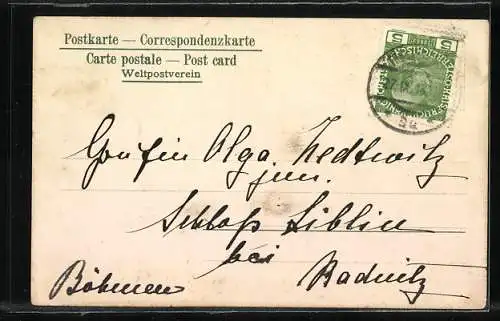 Postkarte — Correspondenzkarte
Carte postale — Post card
Weltpostverein
5 5
Gräfin Olga Zedtwitz
jun.
Schloß Liblin
bei
Radnitz
Böhmen